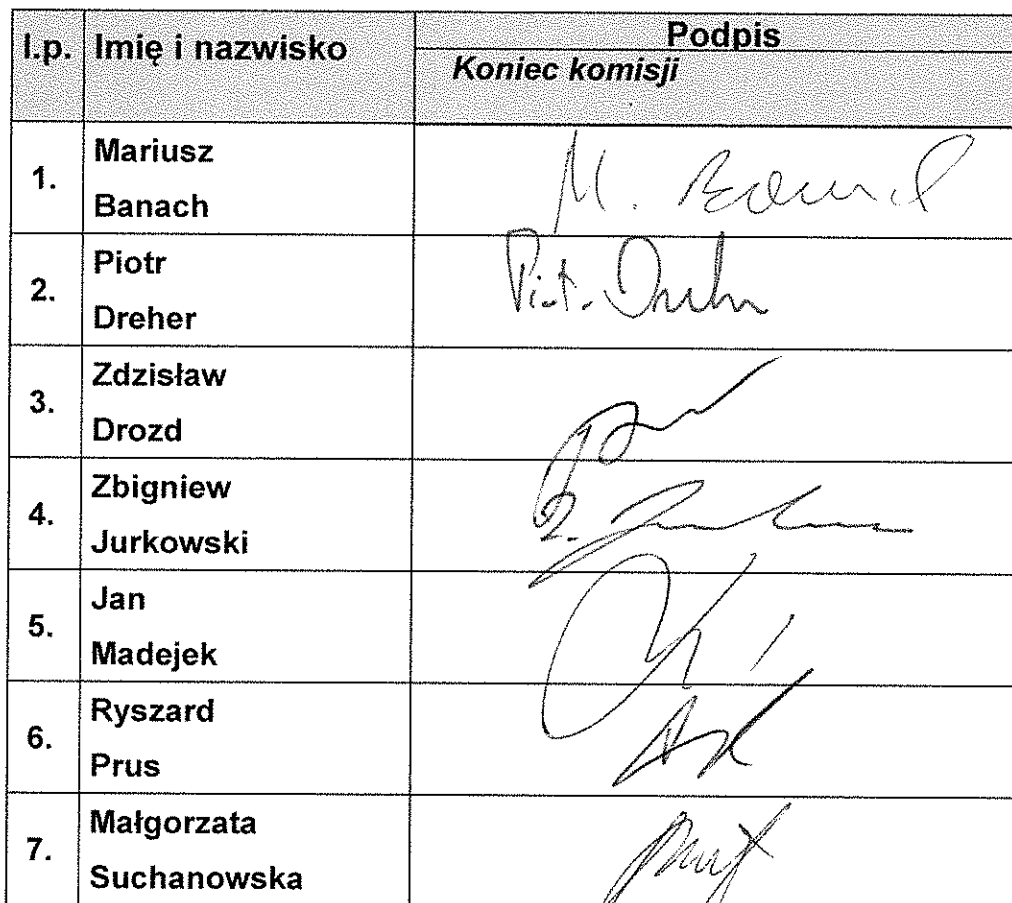 l.p. Imię i nazwisko Podpis
Koniec komisji
1. Mariusz
Banach
M.
2. Piotr
Dreher
3. Zdzisław
Drozd
4. Zbigniew
Jurkowski
5. Jan
Madejek
6. Ryszard
Prus
7. Małgorzata
Suchanowska